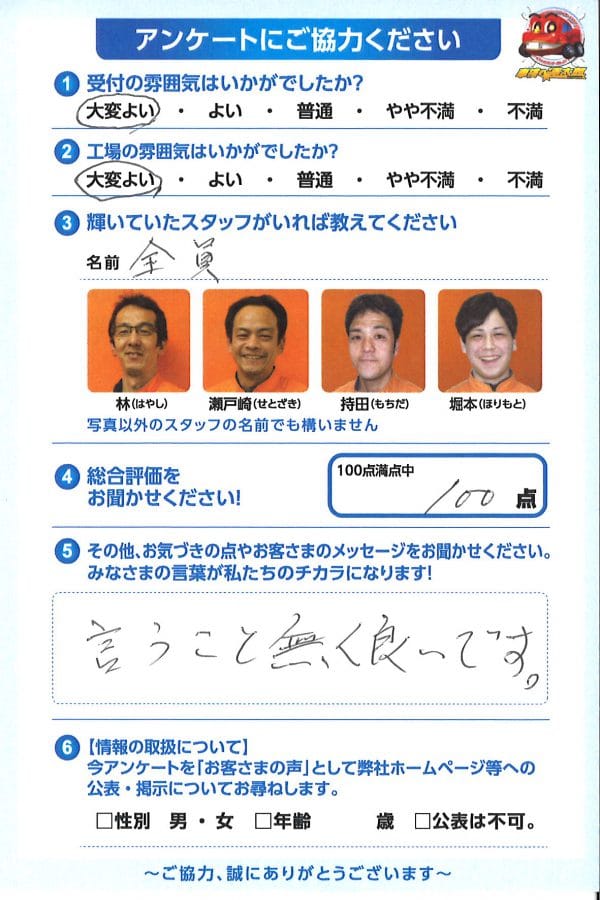 アンケートにご協力ください
1 受付の雰囲気はいかがでしたか?
大変よい ・ よい ・ 普通 ・ やや不満 ・ 不満
2 工場の雰囲気はいかがでしたか?
大変よい ・ よい ・ 普通 ・ やや不満 ・ 不満
3 輝いていたスタッフがいれば教えてください
名前 全員
林(はやし) 瀬戸崎(せとざき) 持田(もちだ) 堀本(ほりもと)
写真以外のスタッフの名前でも構いません
4 総合評価を
お聞かせください!
100点満点中
100 点
5 その他、お気づきの点やお客さまのメッセージをお聞かせください。
みなさまの言葉が私たちのチカラになります!
言うこと無く良いです。
6 【情報の取扱について】
今アンケートを「お客さまの声」として弊社ホームページ等への
公表・掲示についてお尋ねします。
□性別 男・女 □年齢 歳 □公表は不可。
~ご協力、誠にありがとうございます~